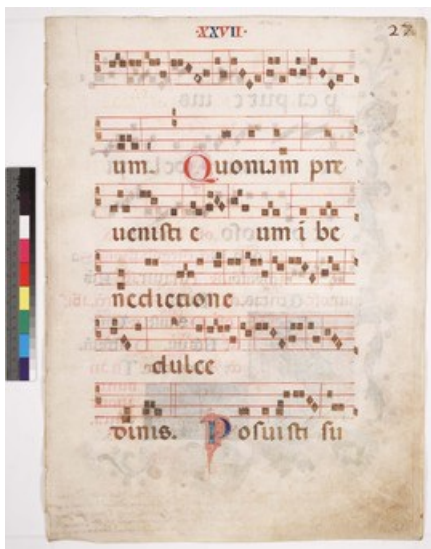 ·XXVII· 27
um. Quoniam pre
uenisti e um i be
nedictione
dulce
dinis. Posuisti su